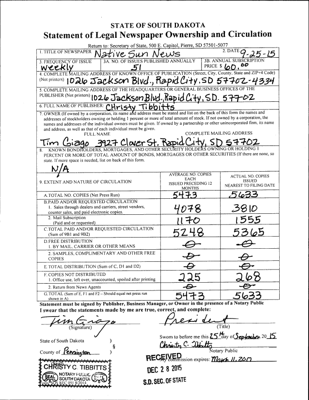 STATE OF SOUTH DAKOTA
Statement of Legal Newspaper Ownership and Circulation
Return to: Secretary of State, 500 E. Capitol, Pierre, SD 57501-5077
1. TITLE OF NEWSPAPER Native Sun News
2. DATE 9-25-15
3. FREQUENCY OF ISSUE weekly
3A. NO. OF ISSUES PUBLISHED ANNUALLY 51
3B. ANNUAL SUBSCRIPTION PRICE $ 60.00
4. COMPLETE MAILING ADDRESS OF KNOWN OFFICE OF PUBLICATION (Street, City, County, State and ZIP+4 Code)
(Not printers) 1026 Jackson Blvd, Rapid City, SD 57702-4334
5. COMPLETE MAILING ADDRESS OF THE HEADQUARTERS OR GENERAL BUSINESS OFFICES OF THE
PUBLISHER (Not printer) 1026 Jackson Blvd. Rapid City, SD. 57702
6. FULL NAME OF PUBLISHER: Christy Tibbitts
7. OWNER (If owned by a corporation, its name and address must be stated and also on the back of this form the names and
addresses of stockholders owning or holding 1 percent or more of total amount of stock. If not owned by a corporation, the
names and addresses of the individual owners must be given. If owned by a partnership or other unincorporated firm, its name
and address, as well as that of each individual must be given.
FULL NAME COMPLETE MAILING ADDRESS
Tim Giago 3927 Clover St. Rapid City, SD 57702
8. KNOWN BONDHOLDERS, MORTGAGEES, AND OTHER SECURITY HOLDERS OWNING OR HOLDING 1
PERCENT OR MORE OF TOTAL AMOUNT OF BONDS, MORTGAGES OR OTHER SECURITIES (If there are none, so
state. If more space is needed, list on back of this form.
N/A
9. EXTENT AND NATURE OF CIRCULATION
AVERAGE NO. COPIES EACH ISSUED PRECEDING 12 MONTHS
ACTUAL NO. COPIES ISSUED NEAREST TO FILING DATE
A TOTAL NO. COPIES (Net Press Run) 5473 5633
B. PAID AND/OR REQUESTED CIRCULATION
1. Sales through dealers and carriers, street vendors, counter sales, and paid electronic copies. 4078 3810
2. Mail Subscription (Paid and or requested) 1170 1555
C. TOTAL PAID AND/OR REQUESTED CIRCULATION (Sum of 9B1 and 9B2) 5248 5365
D. FREE DISTRIBUTION
1. BY MAIL, CARRIER OR OTHER MEANS
2. SAMPLES, COMPLIMENTARY AND OTHER FREE COPIES
E. TOTAL DISTRIBUTION (Sum of C, D1 and D2)
F. COPIES NOT DISTRIBUTED
1. Office use, left over, unaccounted, spoiled after printing 225 268
2. Return from News Agents
G. TOTAL (Sum of E, F1 and F2 - Should equal net press run shown in A) 5473 5633
Statement must be signed by Publisher, Business Manager, or Owner in the presence of a Notary Public
I swear that the statements made by me are true, correct, and complete:
Tim Giago President
(Signature) (Title)
State of South Dakota )
Sworn to before me this 25th day of September 20 15
Christy C. Tibbitts
County of Pennington )
Notary Public
My commission expires: March 11, 2017
CHRISTY C TIBBITTS
SEAL NOTARY PUBLIC SOUTH DAKOTA SEAL
RECEIVED
DEC 28 2015
S.D. SEC. OF STATE